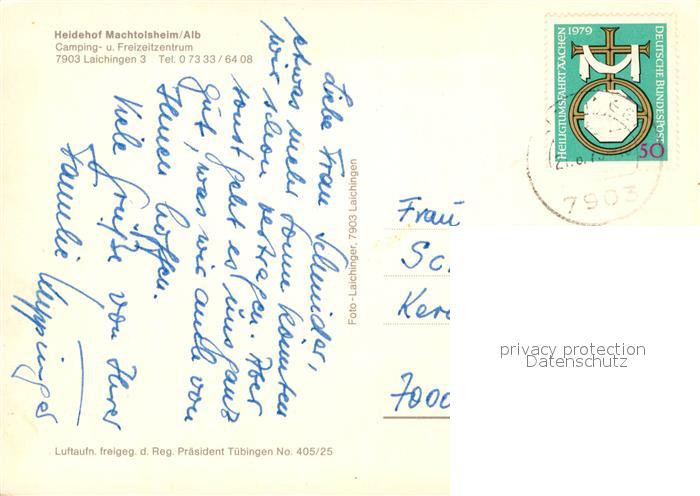 Heidehof Machtolsheim/Alb
Camping- u. Freizeitzentrum
7903 Laichingen 3 Tel. 0 73 33 / 64 08
Liebe Frau Schneider,
etwas mehr Sonne könnten
wir schon vertragen. Aber
sonst geht es uns ganz
gut, was wir auch von
Ihnen hoffen.
Viele Grüße von Ihrer
Familie
Foto-Laichinger, 7903 Laichingen
Luftaufn. freigeg. d. Reg. Präsident Tübingen No. 405/25
HEILIGTUMSFAHRT AACHEN 1979
DEUTSCHE BUNDESPOST
50
7903
Frau
Sc
Ker
7000
privacy protection
Datenschutz